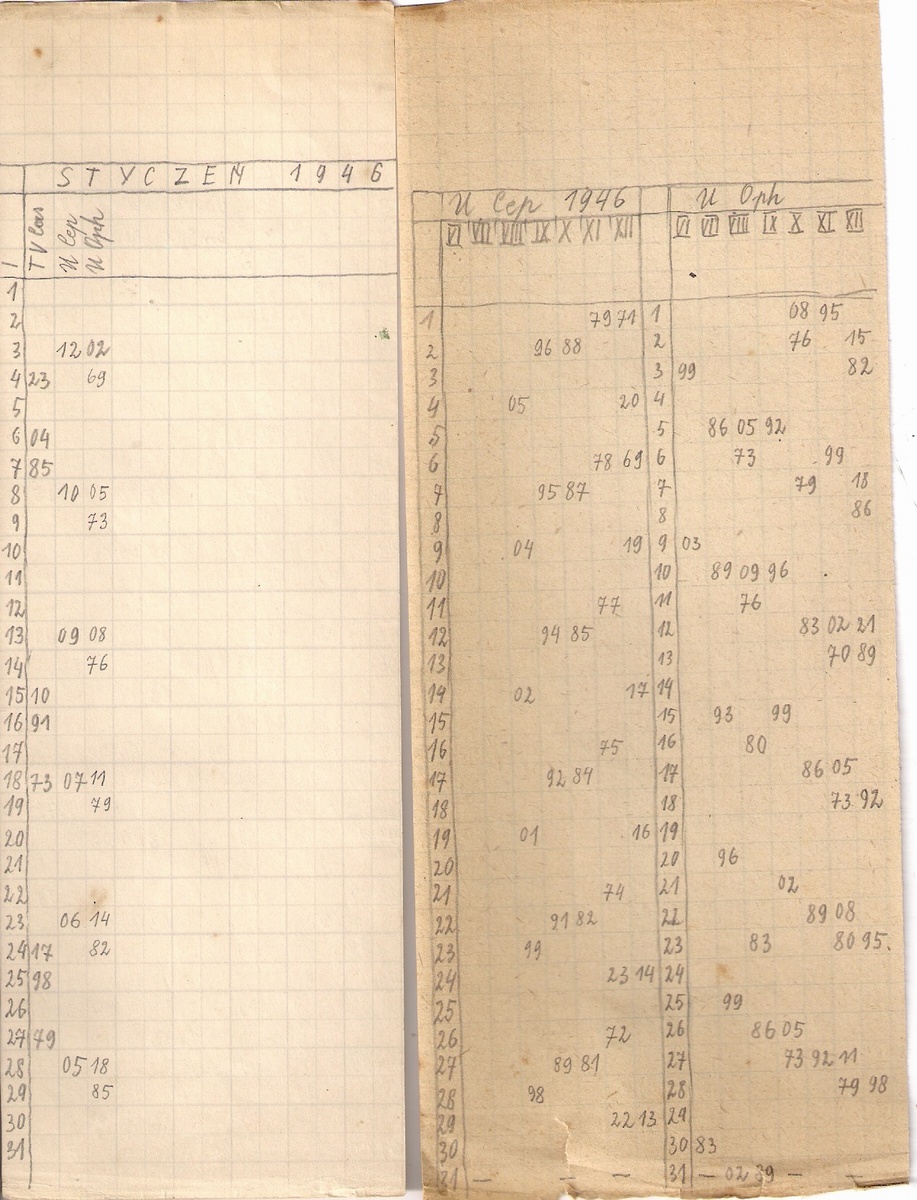 STYCZEŃ 1946
I TV Cas U Cep U Oph
1
2
3 12 02
4 23 69
5
6 04
7 85
8 10 05
9 73
10
11
12
13 09 08
14 76
15 10
16 91
17
18 73 07 11
19 79
20
21
22
23 06 14
24 17 82
25 98
26
27 79
28 05 18
29 85
30
31
U Cep 1946
VI VII VIII IX X XI XII
1 79 71
2 96 88
3
4 05 20
5
6 78 69
7 95 87
8
9 04 19
10
11 77
12 94 85
13
14 02 17
15
16 75
17 92 84
18
19 01 16
20
21 74
22 91 82
23 99
24 23 14
25
26 72
27 89 81
28 98
29 22 13
30
31 — — —
U Oph
VI VII VIII IX X XI XII
1 08 95
2 76 15
3 99 82
4
5 86 05 92
6 73 99
7 79 18
8 86
9 03
10 89 09 96
11 76
12 83 02 21
13 70 89
14
15 93 99
16 80
17 86 05
18 73 92
19
20 96
21 02
22 89 08
23 83 80 95.
24
25 99
26 86 05
27 73 92 11
28 79 98
29
30 83
31 — 02 — —